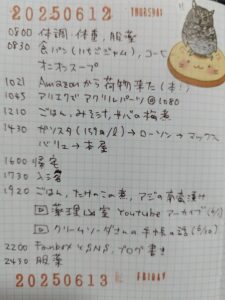 20250612 THURSDAY
0800 体調、体重、服薬
0830 食パン(いちごジャム)、コーヒ
オニオンスープ
1021 Amazonから荷物来た(本!)
1045 アリエクで アクリルパーツ@1080
1210 ごはん、みそ汁、サバの梅煮
1430 ガソスタ(159@/ℓ)→ローソン→マックス
バリュ→本屋
1600 帰宅
1730 入浴
1920 ごはん、たけのこの煮、アジの南蛮漬け
薬理凶室 YouTube アーカイブ
クリームソーダさんの手帳の話
2200 Fanboxと SNS、ブログ書き
2430 服薬
20250613 FRIDAY